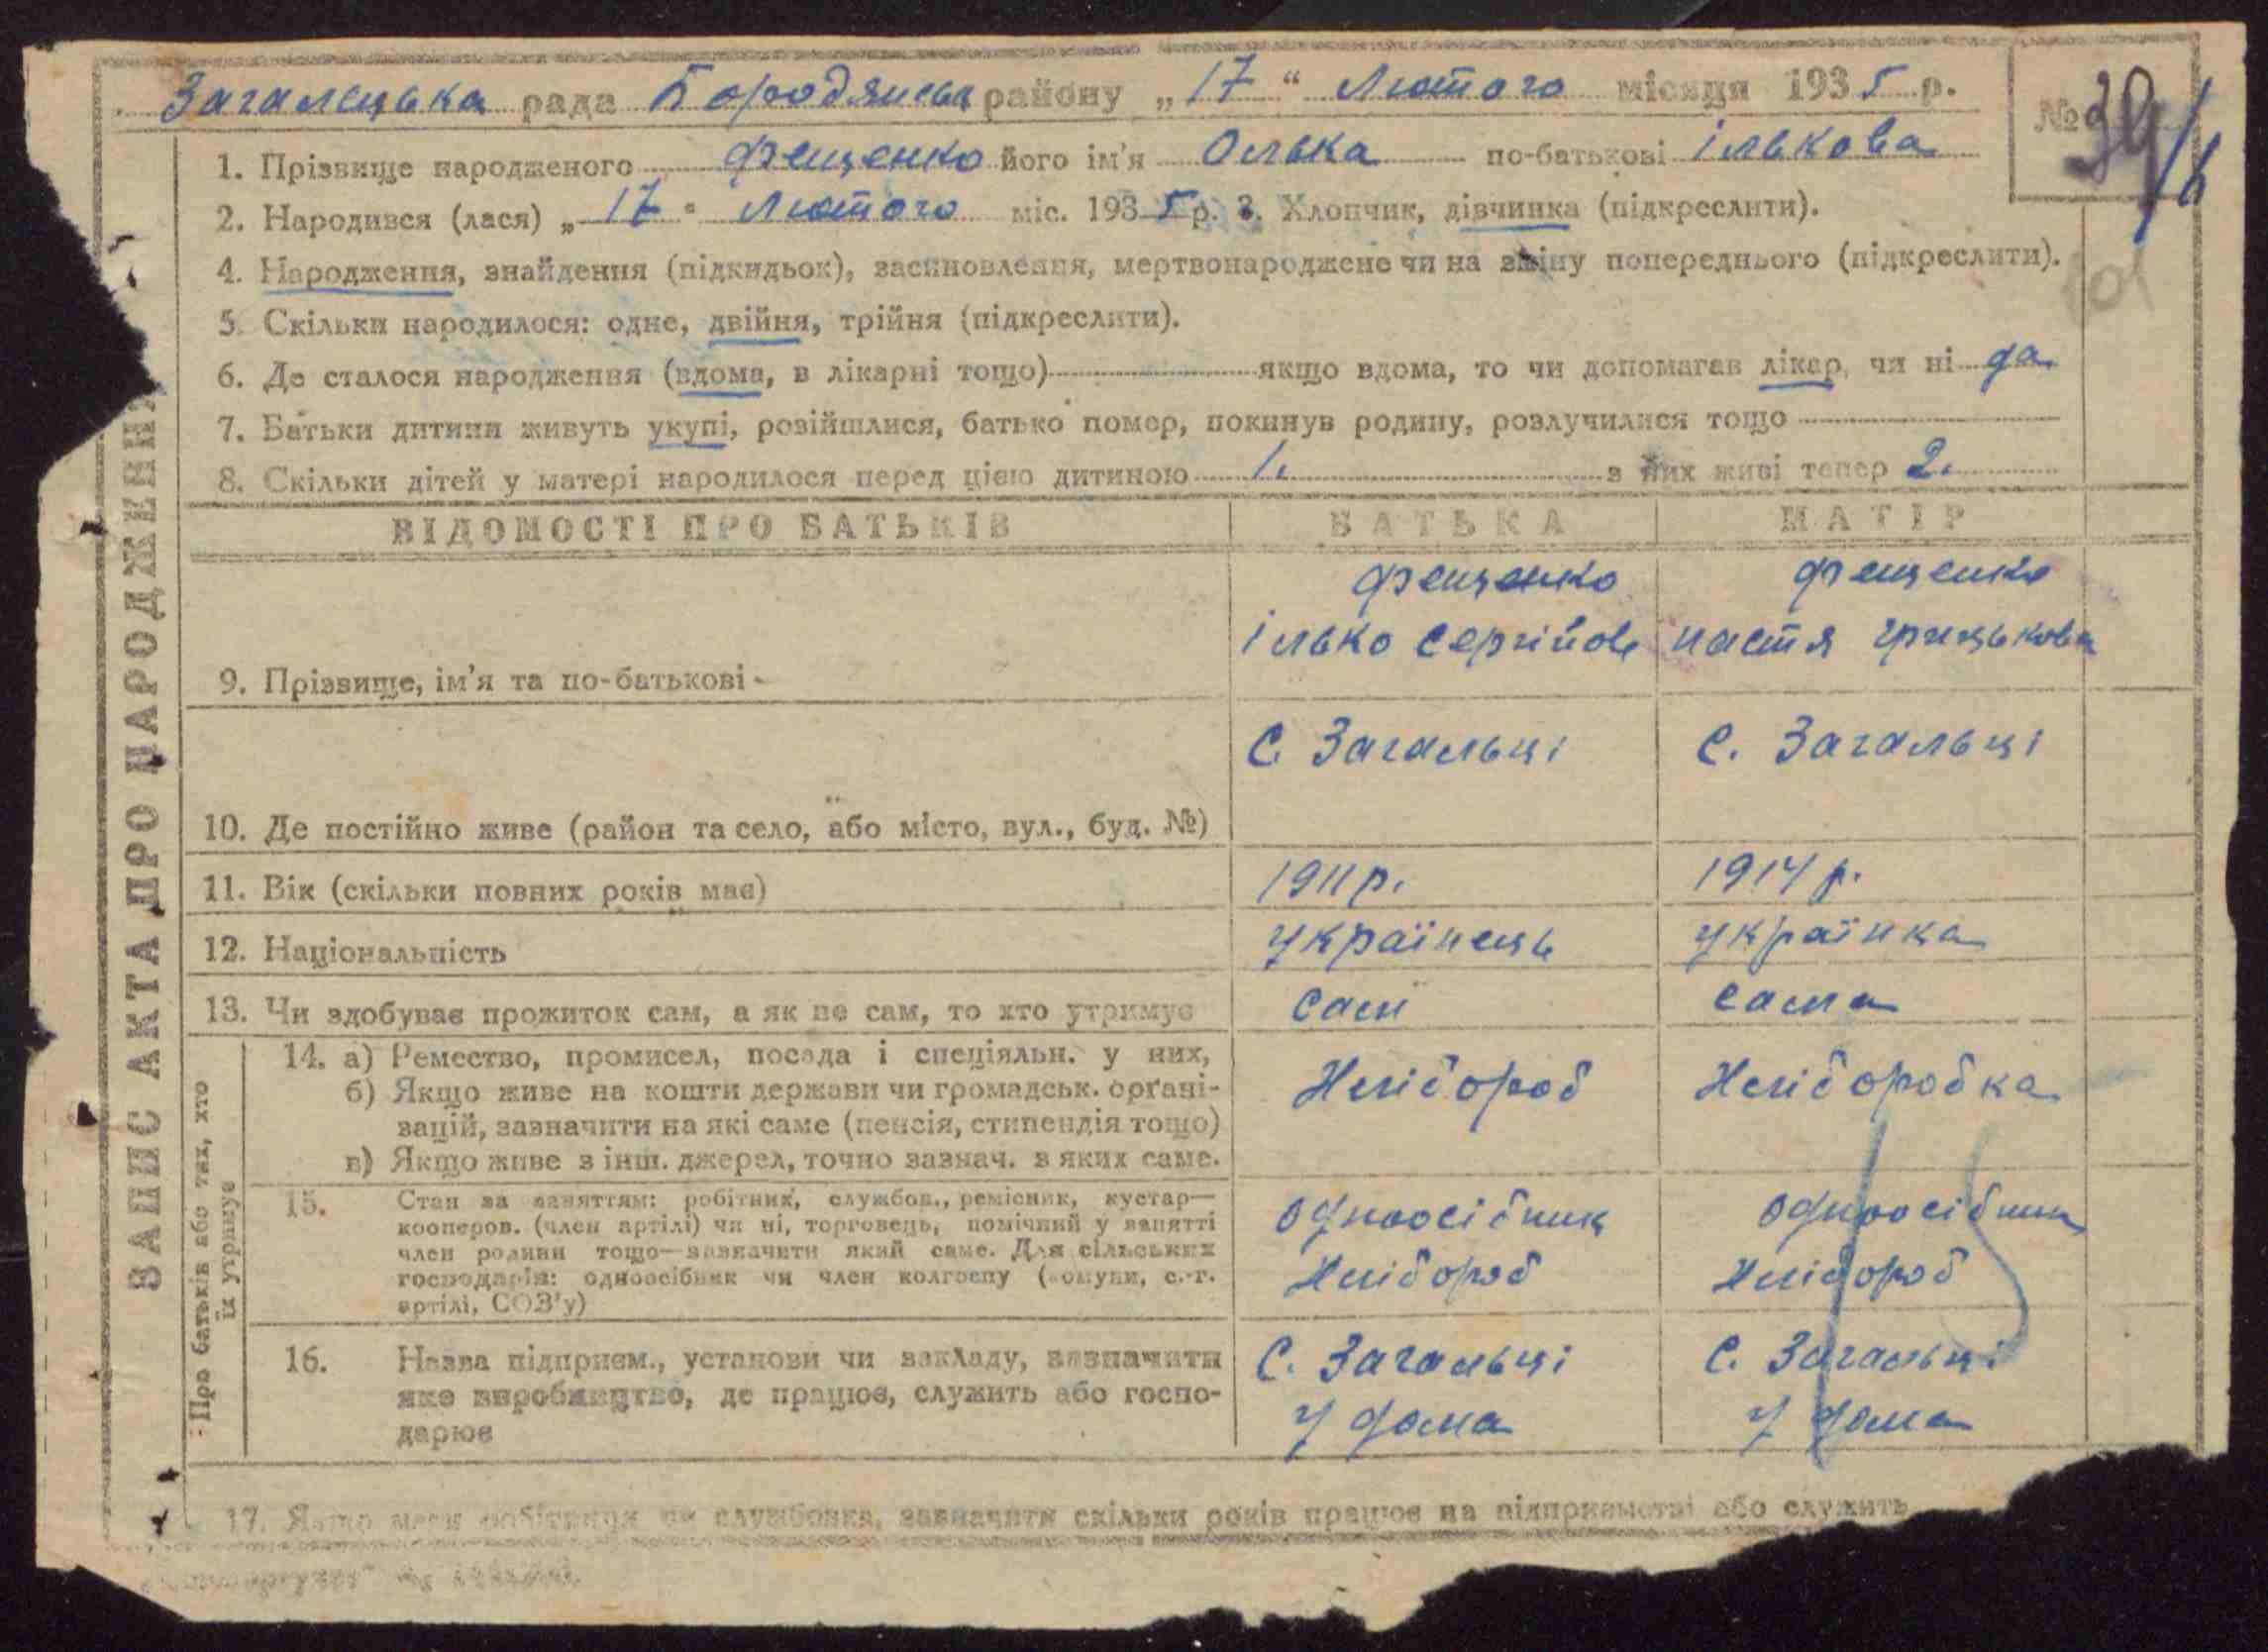 Загалецька рада Бородянськ району „17“ Лютого місяця 1935 р.
№
1. Прізвище народженого Фещенко його ім'я Олька по-батькові Ількова
2. Народився (лася) „17" Лютого міс. 1935 р. 3. Хлопчик, дівчинка (підкреслити).
4. Народження, знайдення (підкидьок), засиновлення, мертвонароджене чи на зміну попереднього (підкреслити).
5. Скільки народилося: одне, двійня, трійня (підкреслити).
6. Де сталося народження (вдома, в лікарні тощо) якщо вдома, то чи допомагав лікар, чи ні да
7. Батьки дитини живуть укупі, розійшлися, батько помер, покинув родину, розлучилися тощо
8. Скільки дітей у матері народилося перед цією дитиною 1. з них живі тепер 2.
ЗАПИС АКТА ПРО НАРОДЖЕННЯ
ВІДОМОСТІ ПРО БАТЬКІВ БАТЬКА МАТІР
Фещенко Фещенко
Ілько Сергійов Настя Грицькова
9. Прізвище, ім'я та по-батькові
С. Загальці С. Загальці
10. Де постійно живе (район та село, або місто, вул., буд. №)
11. Вік (скільки повних років має) 1911 р. 1914 р.
12. Національність українець українка
13. Чи здобуває прожиток сам, а як не сам, то хто утримує сам сама
Про батьків або тих, хто
їх утримує
14. а) Ремество, промисел, посада і спеціяльн. у них,
б) Якщо живе на кошти держави чи громадськ. орґані-
зацій, зазначити на які саме (пенсія, стипендія тощо)
в) Якщо живе з інш. джерел, точно зазнач. з яких саме.
Хлібороб Хліборобка
15. Стан за заняттям: робітник, службов., ремісник, кустар—
кооперов. (член артілі) чи ні, торговець, помічний у занятті
член родини тощо—зазначити який саме. Для сільських
господарів: одноосібник чи член колгоспу (комуни, с.-г.
артілі, СОЗ'у)
одноосібник одноосібник
Хлібороб Хлібороб
16. Назва підприєм., установи чи закладу, зазначити
яке виробництво, де працює, служить або госпо-
дарює
С. Загальці С. Загальці
у дома у дома
17. Якщо мати робітниця чи службовка, зазначити скільки років працює на підприємстві або служить